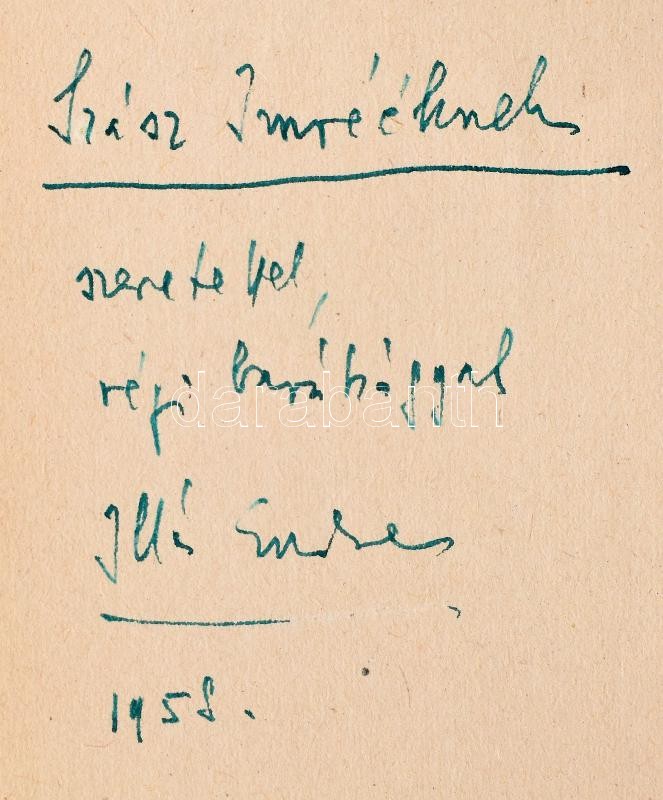 Szász Imrééknek
szeretettel,
régi barátsággal
darabanth
Illés Endre
1958.